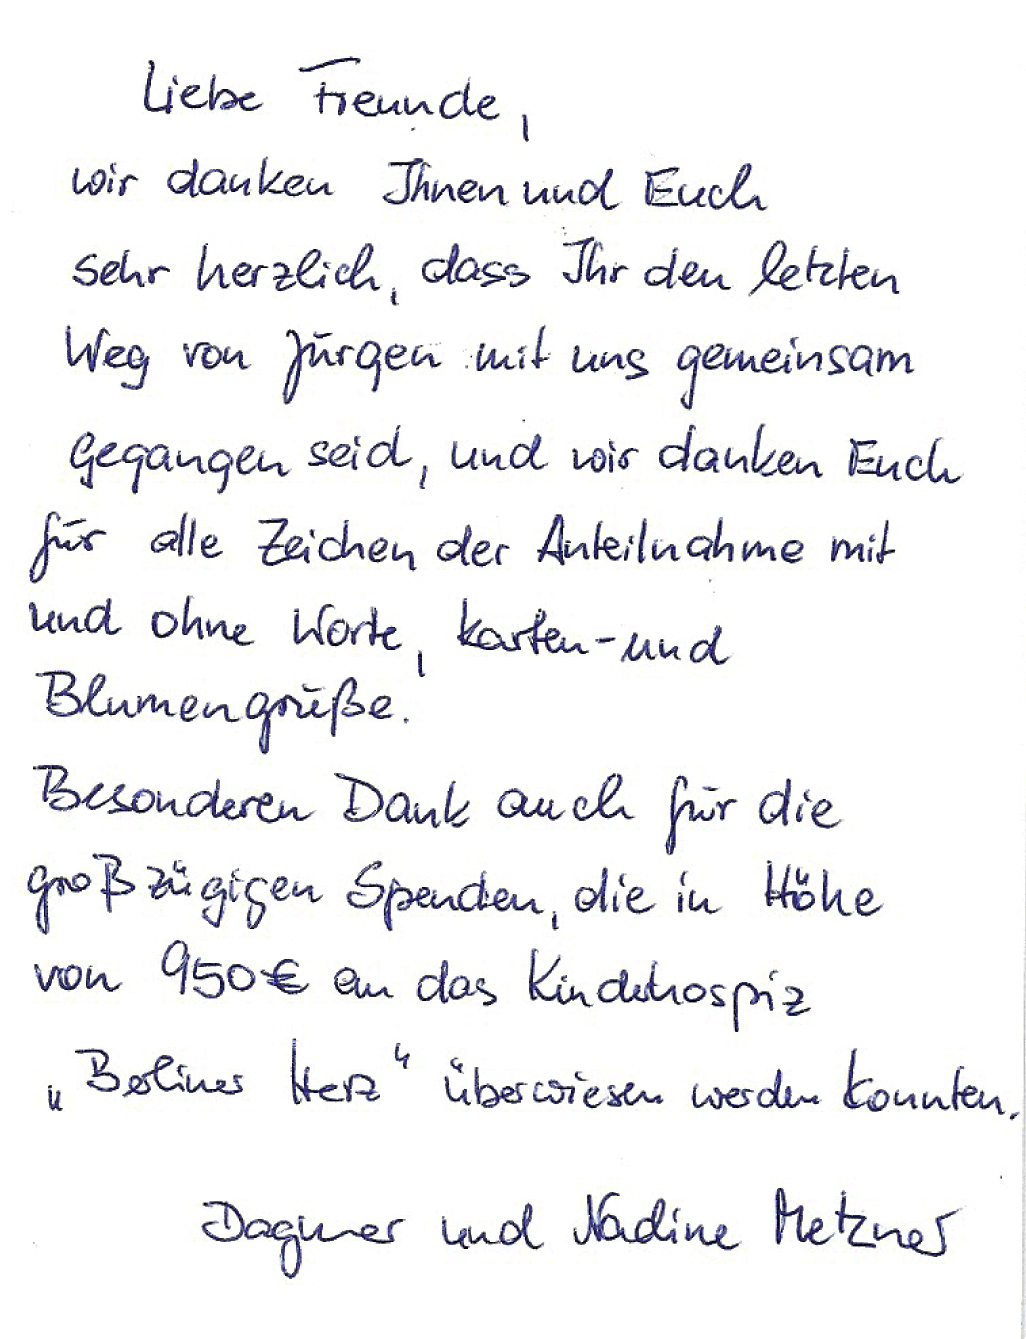 Liebe Freunde,
wir danken Ihnen und Euch
sehr herzlich, dass Ihr den letzten
Weg von Jürgen mit uns gemeinsam
gegangen seid, und wir danken Euch
für alle Zeichen der Anteilnahme mit
und ohne Worte, Karten- und
Blumengrüße.
Besonderen Dank auch für die
großzügigen Spenden, die in Höhe
von 950€ an das Kinderhospiz
„Berliner Herz“ überwiesen werden konnten.
Dagmar und Nadine Metzner